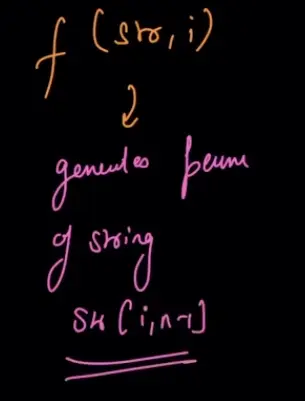 f (str, i)
generates perm
of string
str [i, n-1]